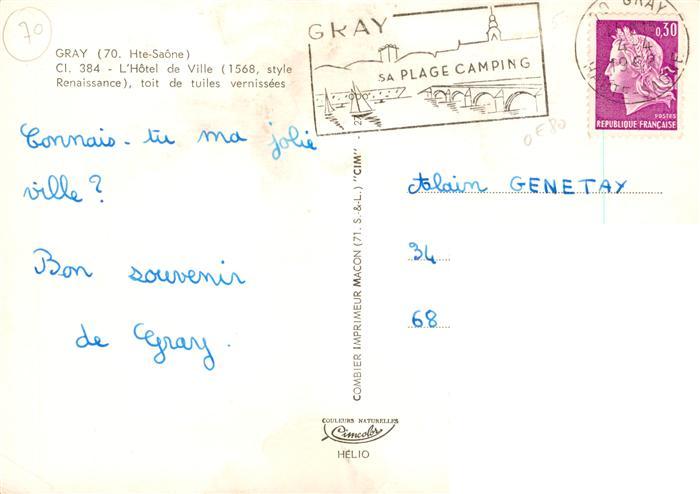 70
GRAY (70. Hte-Saône)
Cl. 384 - L'Hôtel de Ville (1568, style
Renaissance), toit de tuiles vernissées
GRAY
SA PLAGE CAMPING
GRAY
0,30
POSTES
REPUBLIQUE FRANÇAISE
0€80
Connais-tu ma jolie
ville ?
Bon souvenir
de Gray.
COMBIER IMPRIMEUR MACON (71. S.-&-L.) "CIM"
Alain GENETAY
34
68
COULEURS NATURELLES
Cimcolor
HÉLIO